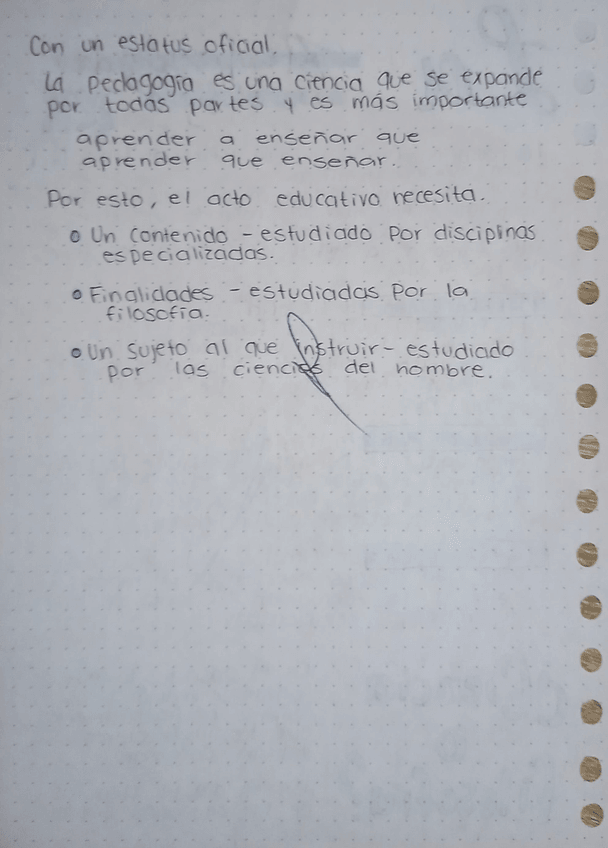 Con un estatus oficial.
La pedagogía es una ciencia que se expande
por todas partes y es más importante
aprender a enseñar que
aprender que enseñar.
Por esto, el acto educativo necesita.
Un contenido - estudiado por discipinas
especializadas.
Finalidades - estudiadas por la
filosofía.
Un sujeto al que instruir - estudiado
por las ciencias del hombre.